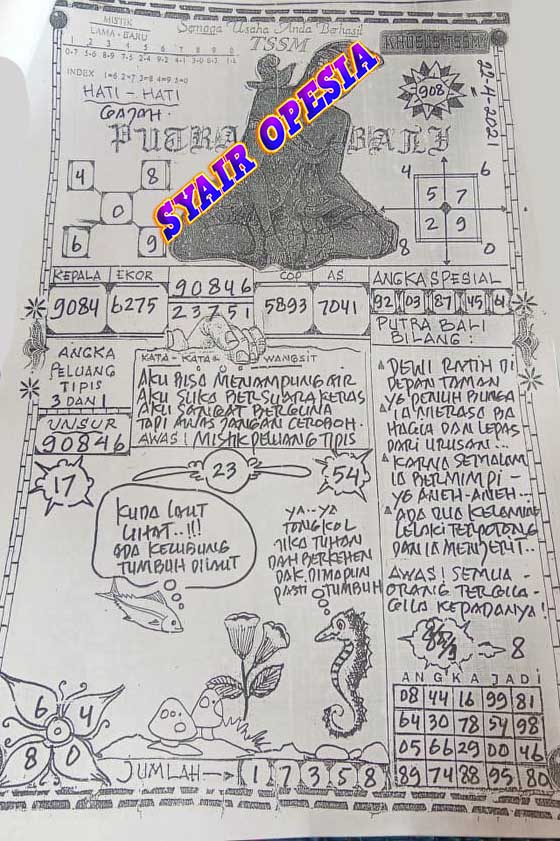 MISTIK
LAMA - BARU
1 2 3 4 5 6 7 8 9 0
0-7 5-6 8-9 7-5 2-4 9-2 4-1 3-0 6-3 1-8
INDEX 1=6 2=7 3=8 4=9 5=0
Semoga Usaha Anda Berhasil
TSSM
KHUSUS TSSM
908
22-4-2021
HATI - HATI
GAJAH.
PUTRA BALI
SYAIR OPESIA
4 8
0
6 9
4 6
5 7
2 9
8 0
KEPALA EKOR
9084 6275
90846
23751
COP AS
5893 7041
ANGKA SPESIAL
92 03 87 45 61
PUTRA BALI
BILANG :
ANGKA
PELUANG
TIPIS
3 DAN 1
UNSUR
90846
KATA - KATA WANGSIT
AKU BISA MENAMPUNG AIR
AKU SUKA BERSUARA KERAS
AKU SANGAT BERGUNA
TAPI AWAS JANGAN CEROBOH.
AWAS! MISTIK PELUANG TIPIS
DEWI RATIH DI
DEPAN TAMAN
YG PENUH BUNGA
IA MERASA BA
HAGIA DAN LEPAS
DARI URUSAN...
KARNA SEMALAM
IA BERMIMPI -
YG ANEH-ANEH...
ADA DUA KELAMIN
LELAKI TERPOTONG
DAN IA MENJERIT..
AWAS! SEMUA -
ORANG TERGILA -
GILA KEPADANYA!
17
23
54
KUDA LAUT
LIHAT..!!!
ADA KECUBUNG
TUMBUH DI LAUT
YA..YA
TONGKOL
JIKA TUHAN
DAH BERKEHEN
DAK, DIMAPUN
PASTI TUMBUH
8
ANGKA JADI
08 44 16 99 81
64 30 78 54 98
05 66 29 00 46
89 74 88 95 80
6 4
8 0
JUMLAH → 1 7 3 5 8